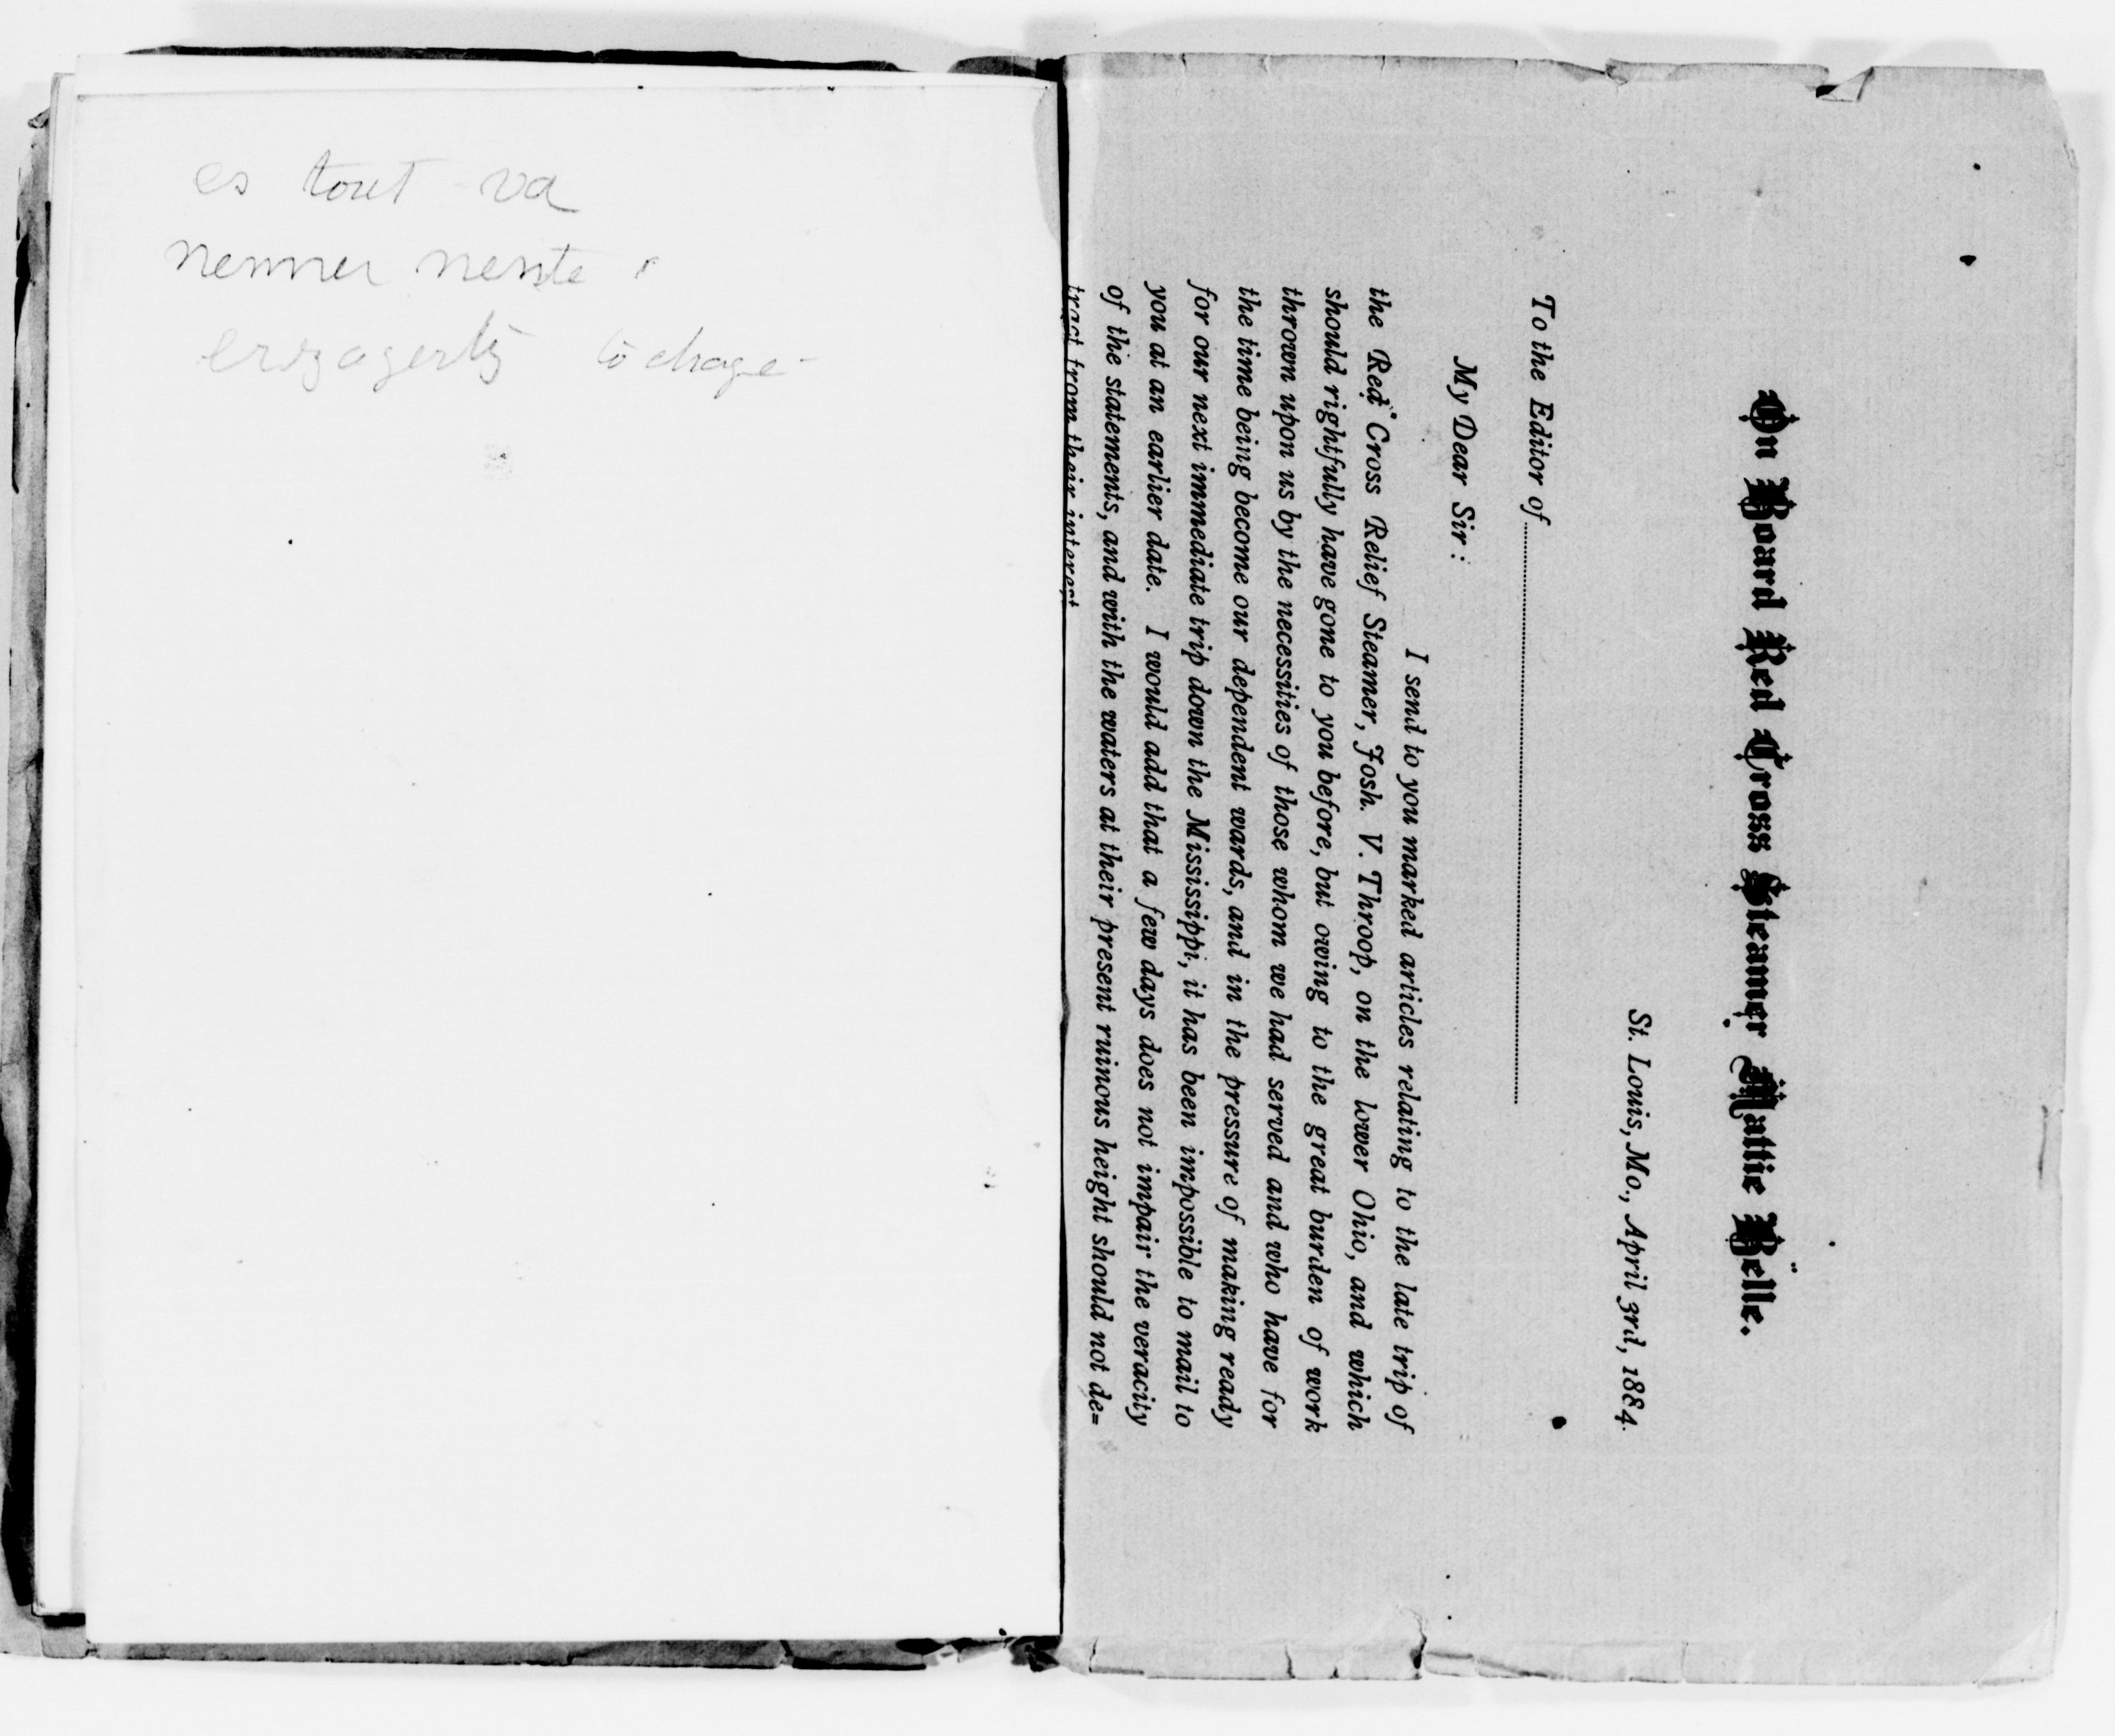 es tout va
nemner nente
to chage-
On Board Red Cross Steamer Mattie Belle.
St. Louis, Mo., April 3rd, 1884.
To the Editor of
My Dear Sir:
I send to you marked articles relating to the late trip of
the Red Cross Relief Steamer, Josh. V. Throop, on the lower Ohio, and which
should rightfully have gone to you before, but owing to the great burden of work
thrown upon us by the necessities of those whom we had served and who have for
the time being become our dependent wards, and in the pressure of making ready
for our next immediate trip down the Mississippi, it has been impossible to mail to
you at an earlier date. I would add that a few days does not impair the veracity
of the statements, and with the waters at their present ruinous height should not de=
tract from their interest